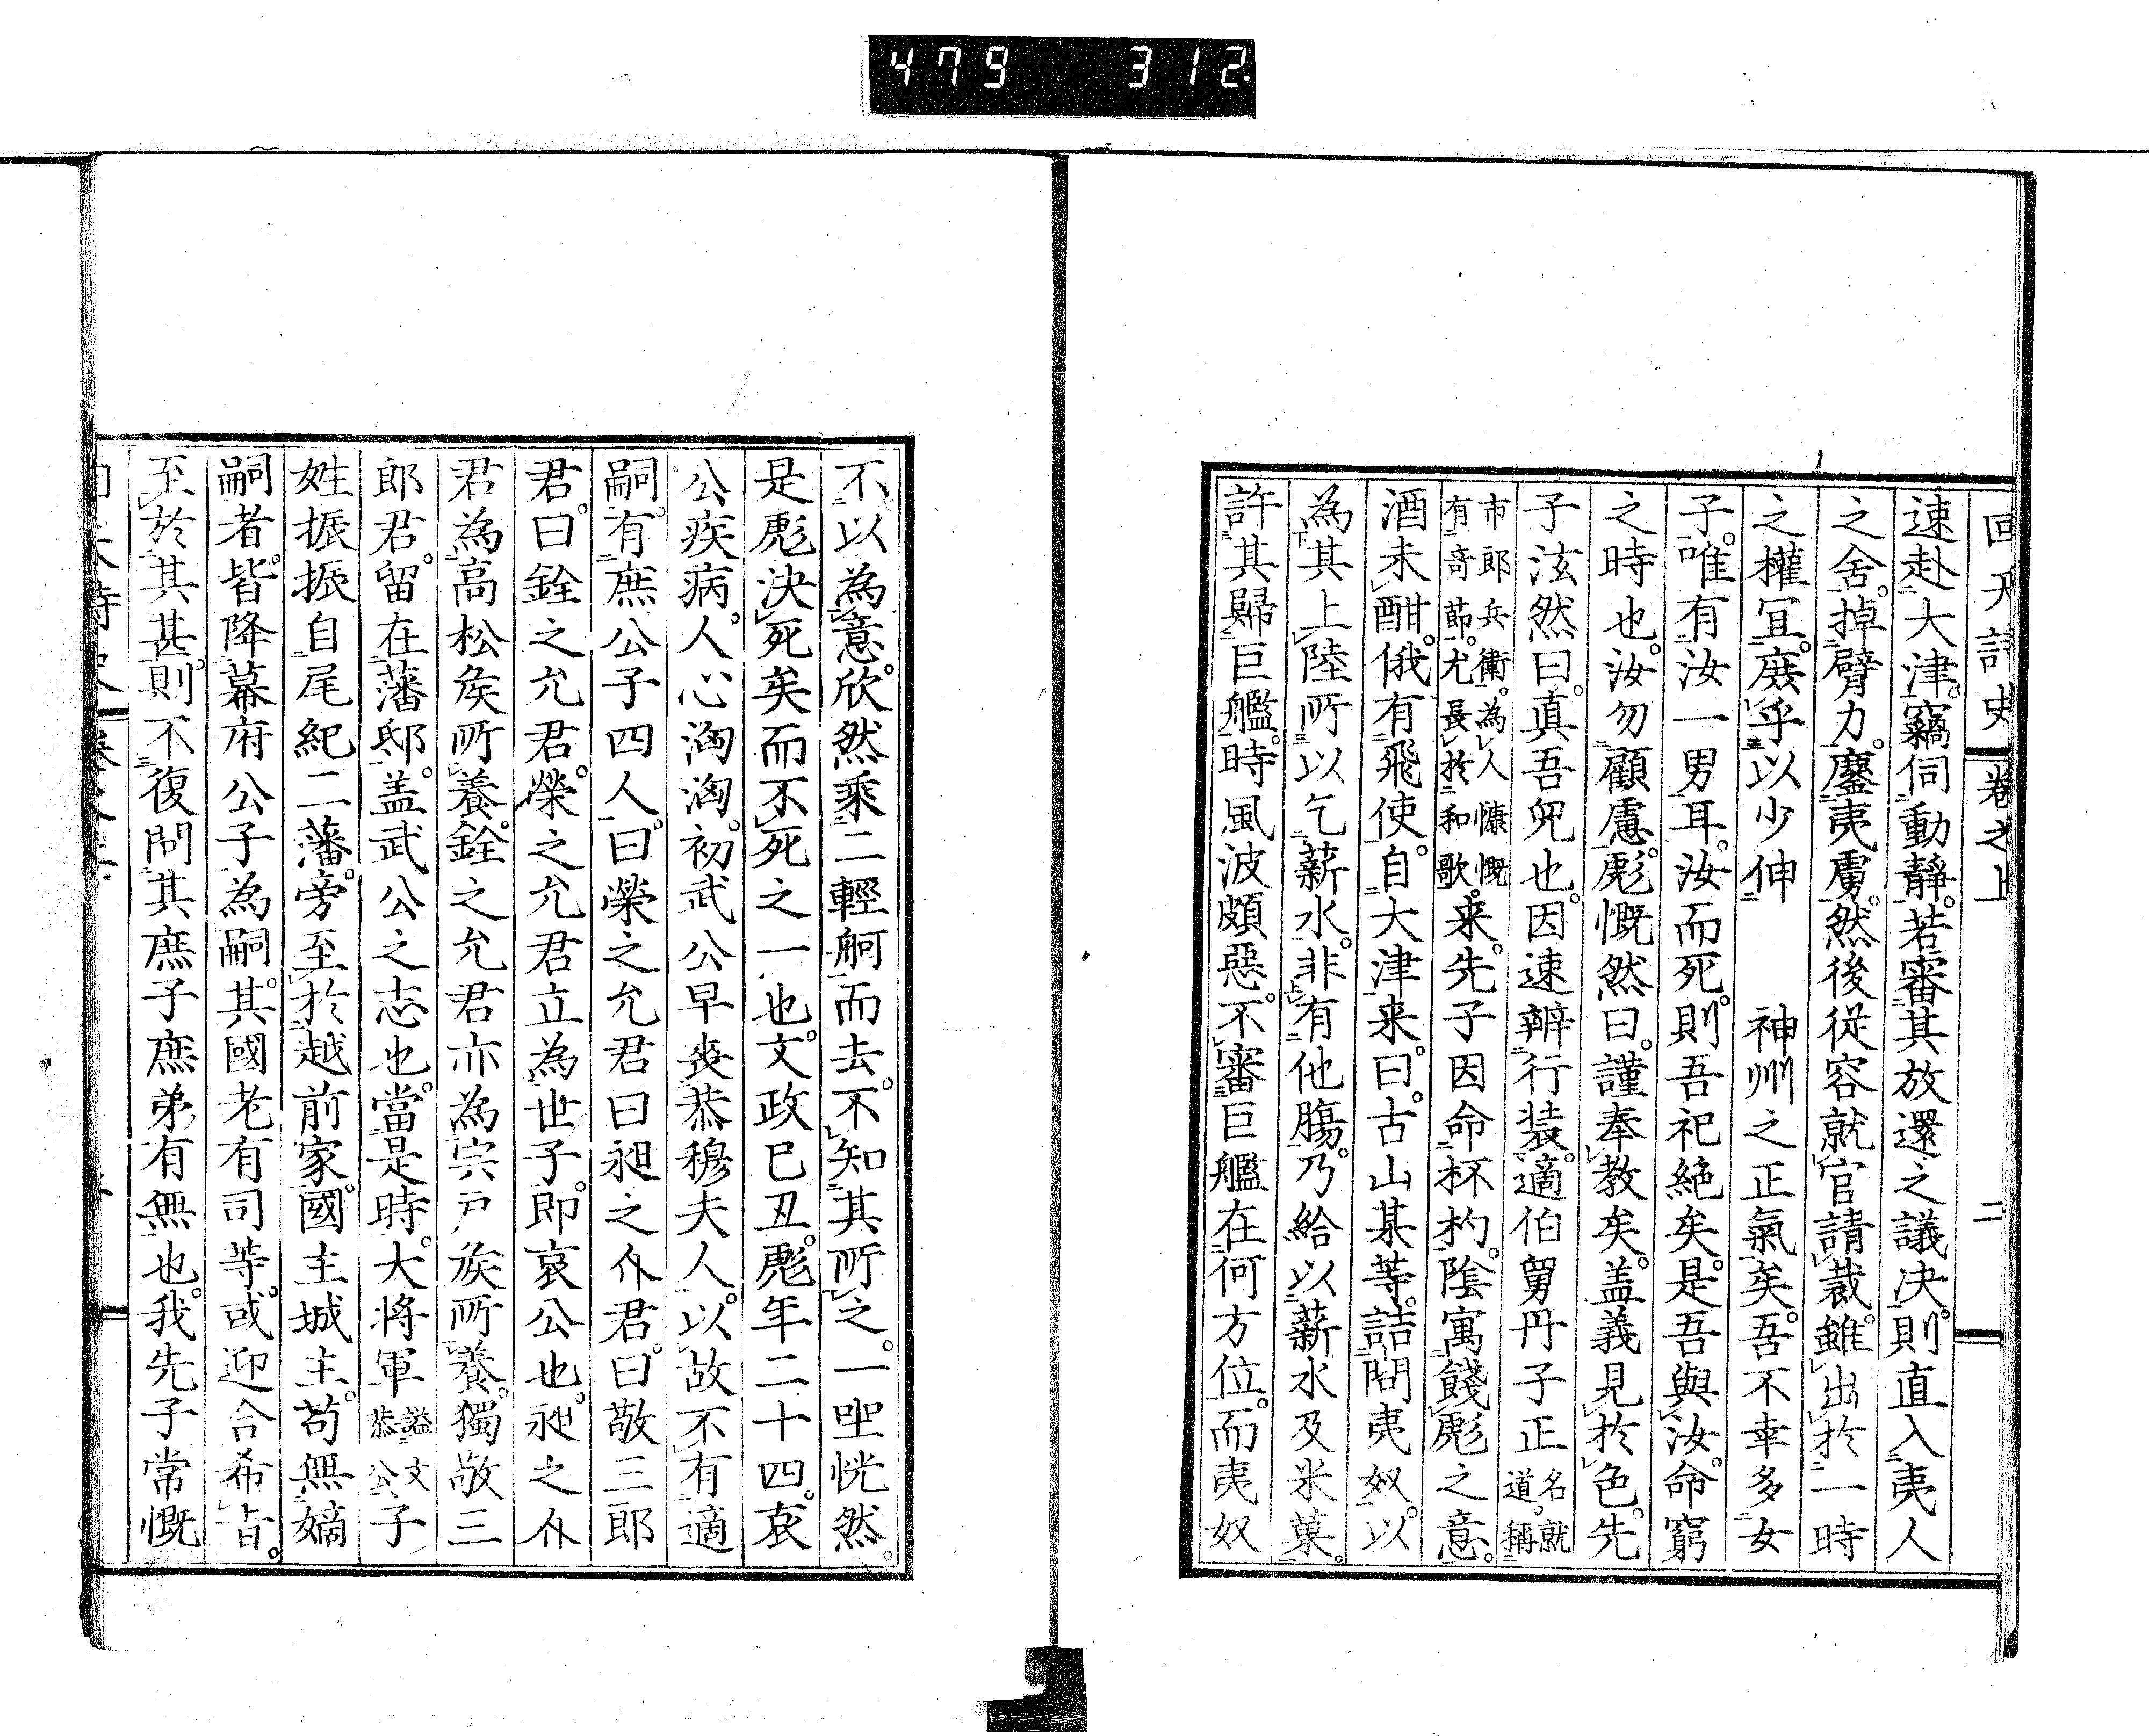 479 312
回天詩史 卷之上 二
速赴大津。竊伺動靜。若審其放還之議決。則直入夷人
之舍。掉臂力。鏖夷虜。然後從容就官請裁。雖出於一時
之權宜。庶乎以少伸 神州之正氣矣。吾不幸多女
子。唯有汝一男耳。汝而死。則吾祀絶矣。是吾與汝。命窮
之時也。汝勿顧慮。彪慨然曰。謹奉教矣。盖義見於色。先
子泫然曰。真吾兒也。因速辨行装。適伯舅丹子正名就道。稱
市郎兵衛。為人慷慨有奇節。尤長於和歌。来。先子因命杯杓。陰寓餞彪之意。
酒未酣。俄有飛使。自大津来曰。古山某等。詰問夷奴。以
為其上陸所以乞薪水。非有他膓。乃給以薪水及米菓。
許其歸巨艦。時風波頗惡。不審巨艦在何方位。而夷奴
不以為意。欣然乘二輕舸而去。不知其所之。一坐恍然。
是彪決死矣而不死之一也。文政巳丑。彪年二十四。哀
公疾病。人心洶洶。初武公早喪恭穆夫人。以故不有適
嗣。有庶公子四人。曰榮之允君曰昶之介君。曰敬三郎
君。曰銓之允君。榮之允君立為世子。即哀公也。昶之介
君為高松矦所養。銓之允君亦為宍戸矦所養。獨敬三
郎君。留在藩邸。盖武公之志也。當是時。大将軍謚文恭公子
姓振振自尾紀二藩。旁至於越前家國。國主城主。苟無嫡
嗣者。皆降幕府公子為嗣。其國老有司等。或迎合希旨。
至於其甚。則不復問其庶子庶弟有無也。我先子常慨